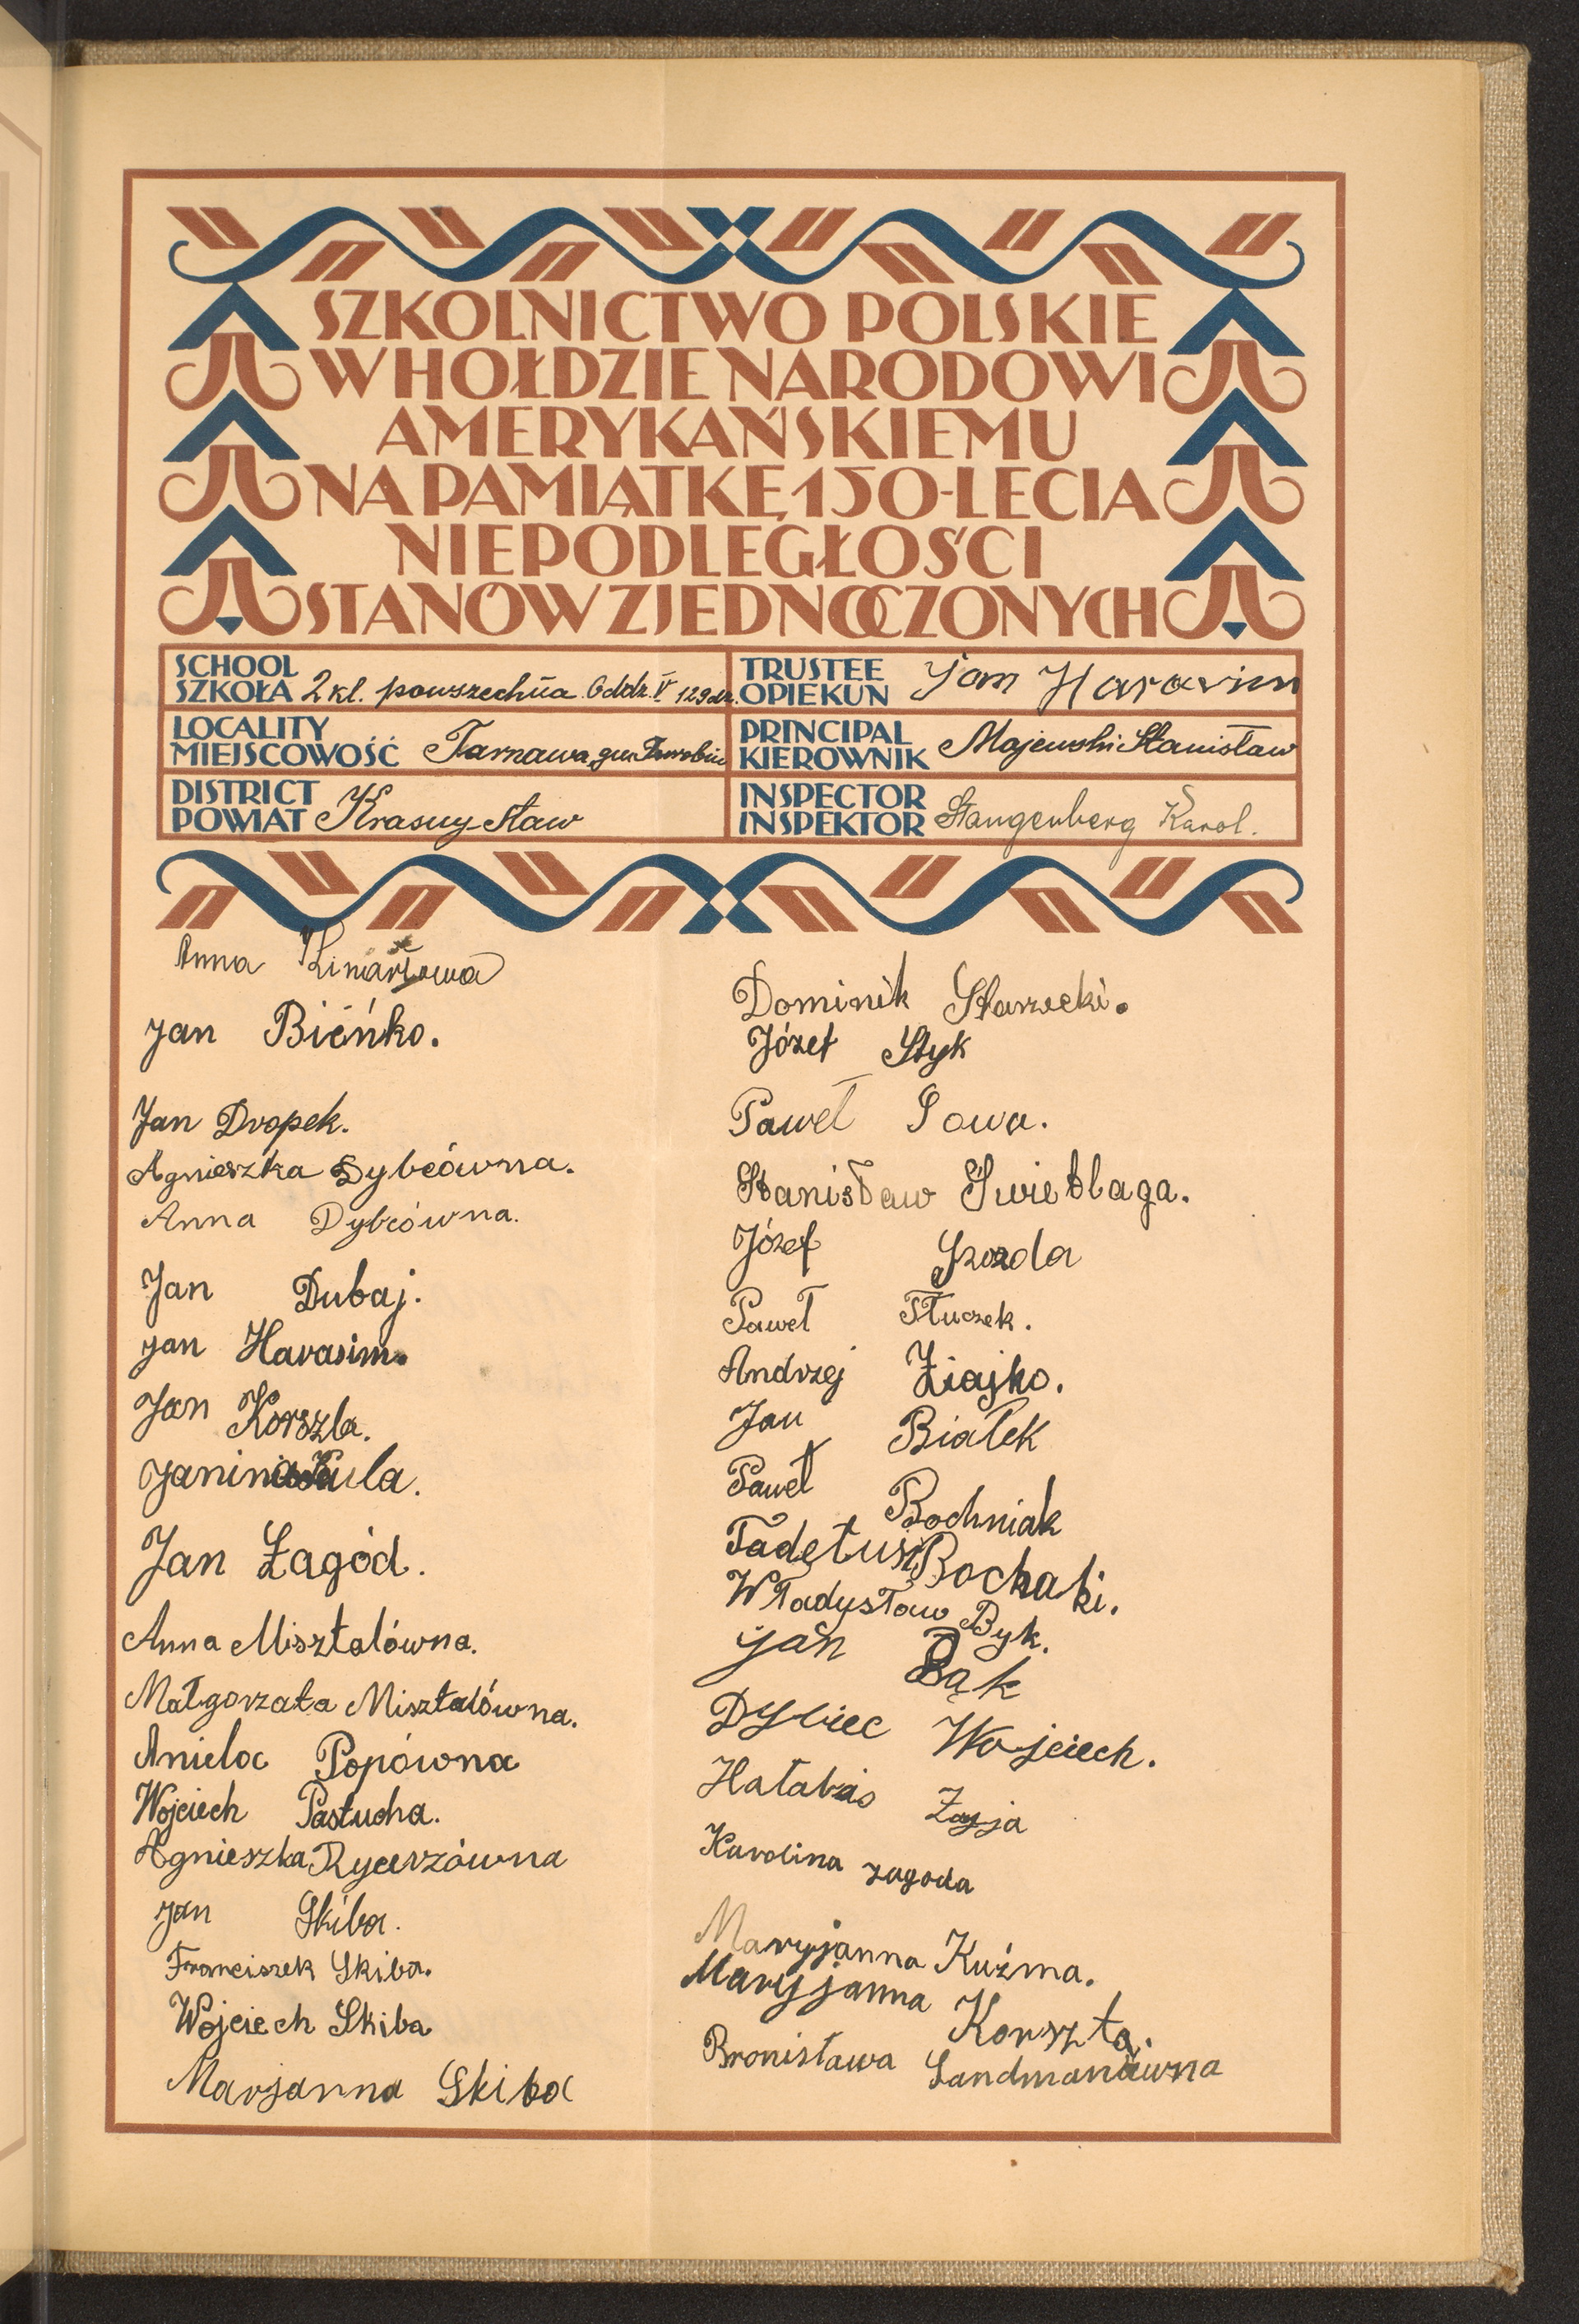 SZKOLNICTWO POLSKIE
W HOŁDZIE NARODOWI
AMERYKAŃSKIEMU
NA PAMIĄTKĘ 150-LECIA
NIEPODLEGŁOŚCI
STANÓW ZJEDNOCZONYCH
SCHOOL
SZKOŁA 2 kl. powszechna Oddz. V 129 dz.
TRUSTEE
OPIEKUN Jan Harasim
LOCALITY
MIEJSCOWOŚĆ Tarnawa, gm. Turobin
PRINCIPAL
KIEROWNIK Majewski Stanisław
DISTRICT
POWIAT Krasny-staw
INSPECTOR
INSPEKTOR Stangenberg Karol.
Anna
Jan Bieńko.
Jan Dropek.
Agnieszka Dybcówna.
Anna Dybcówna.
Jan Dubaj.
Jan Harasim.
Jan Korszla.
Janina Kula.
Jan Łagód.
Anna Misztalówna.
Małgorzata Misztalówna.
Aniela Popówna
Wojciech Pastucha.
Agnieszka Rycerzówna
Jan Skiba.
Franciszek Skiba.
Wojciech Skiba
Marjanna Skiba
Dominik Starzecki.
Józef Styk
Paweł Sowa.
Stanisław Swietlaga.
Józef Szozda
Paweł Tłuczek.
Andrzej Ziajko.
Jan Białek
Paweł Bochniak
Tadeusz Bochaki.
Władysław Byk.
Jan Bąk
Dybiec Wojciech.
Hałabis Zofja
Karolina zagoda
Maryjanna Kuźma.
Maryjanna Korszła.
Bronisława Sandmanówna